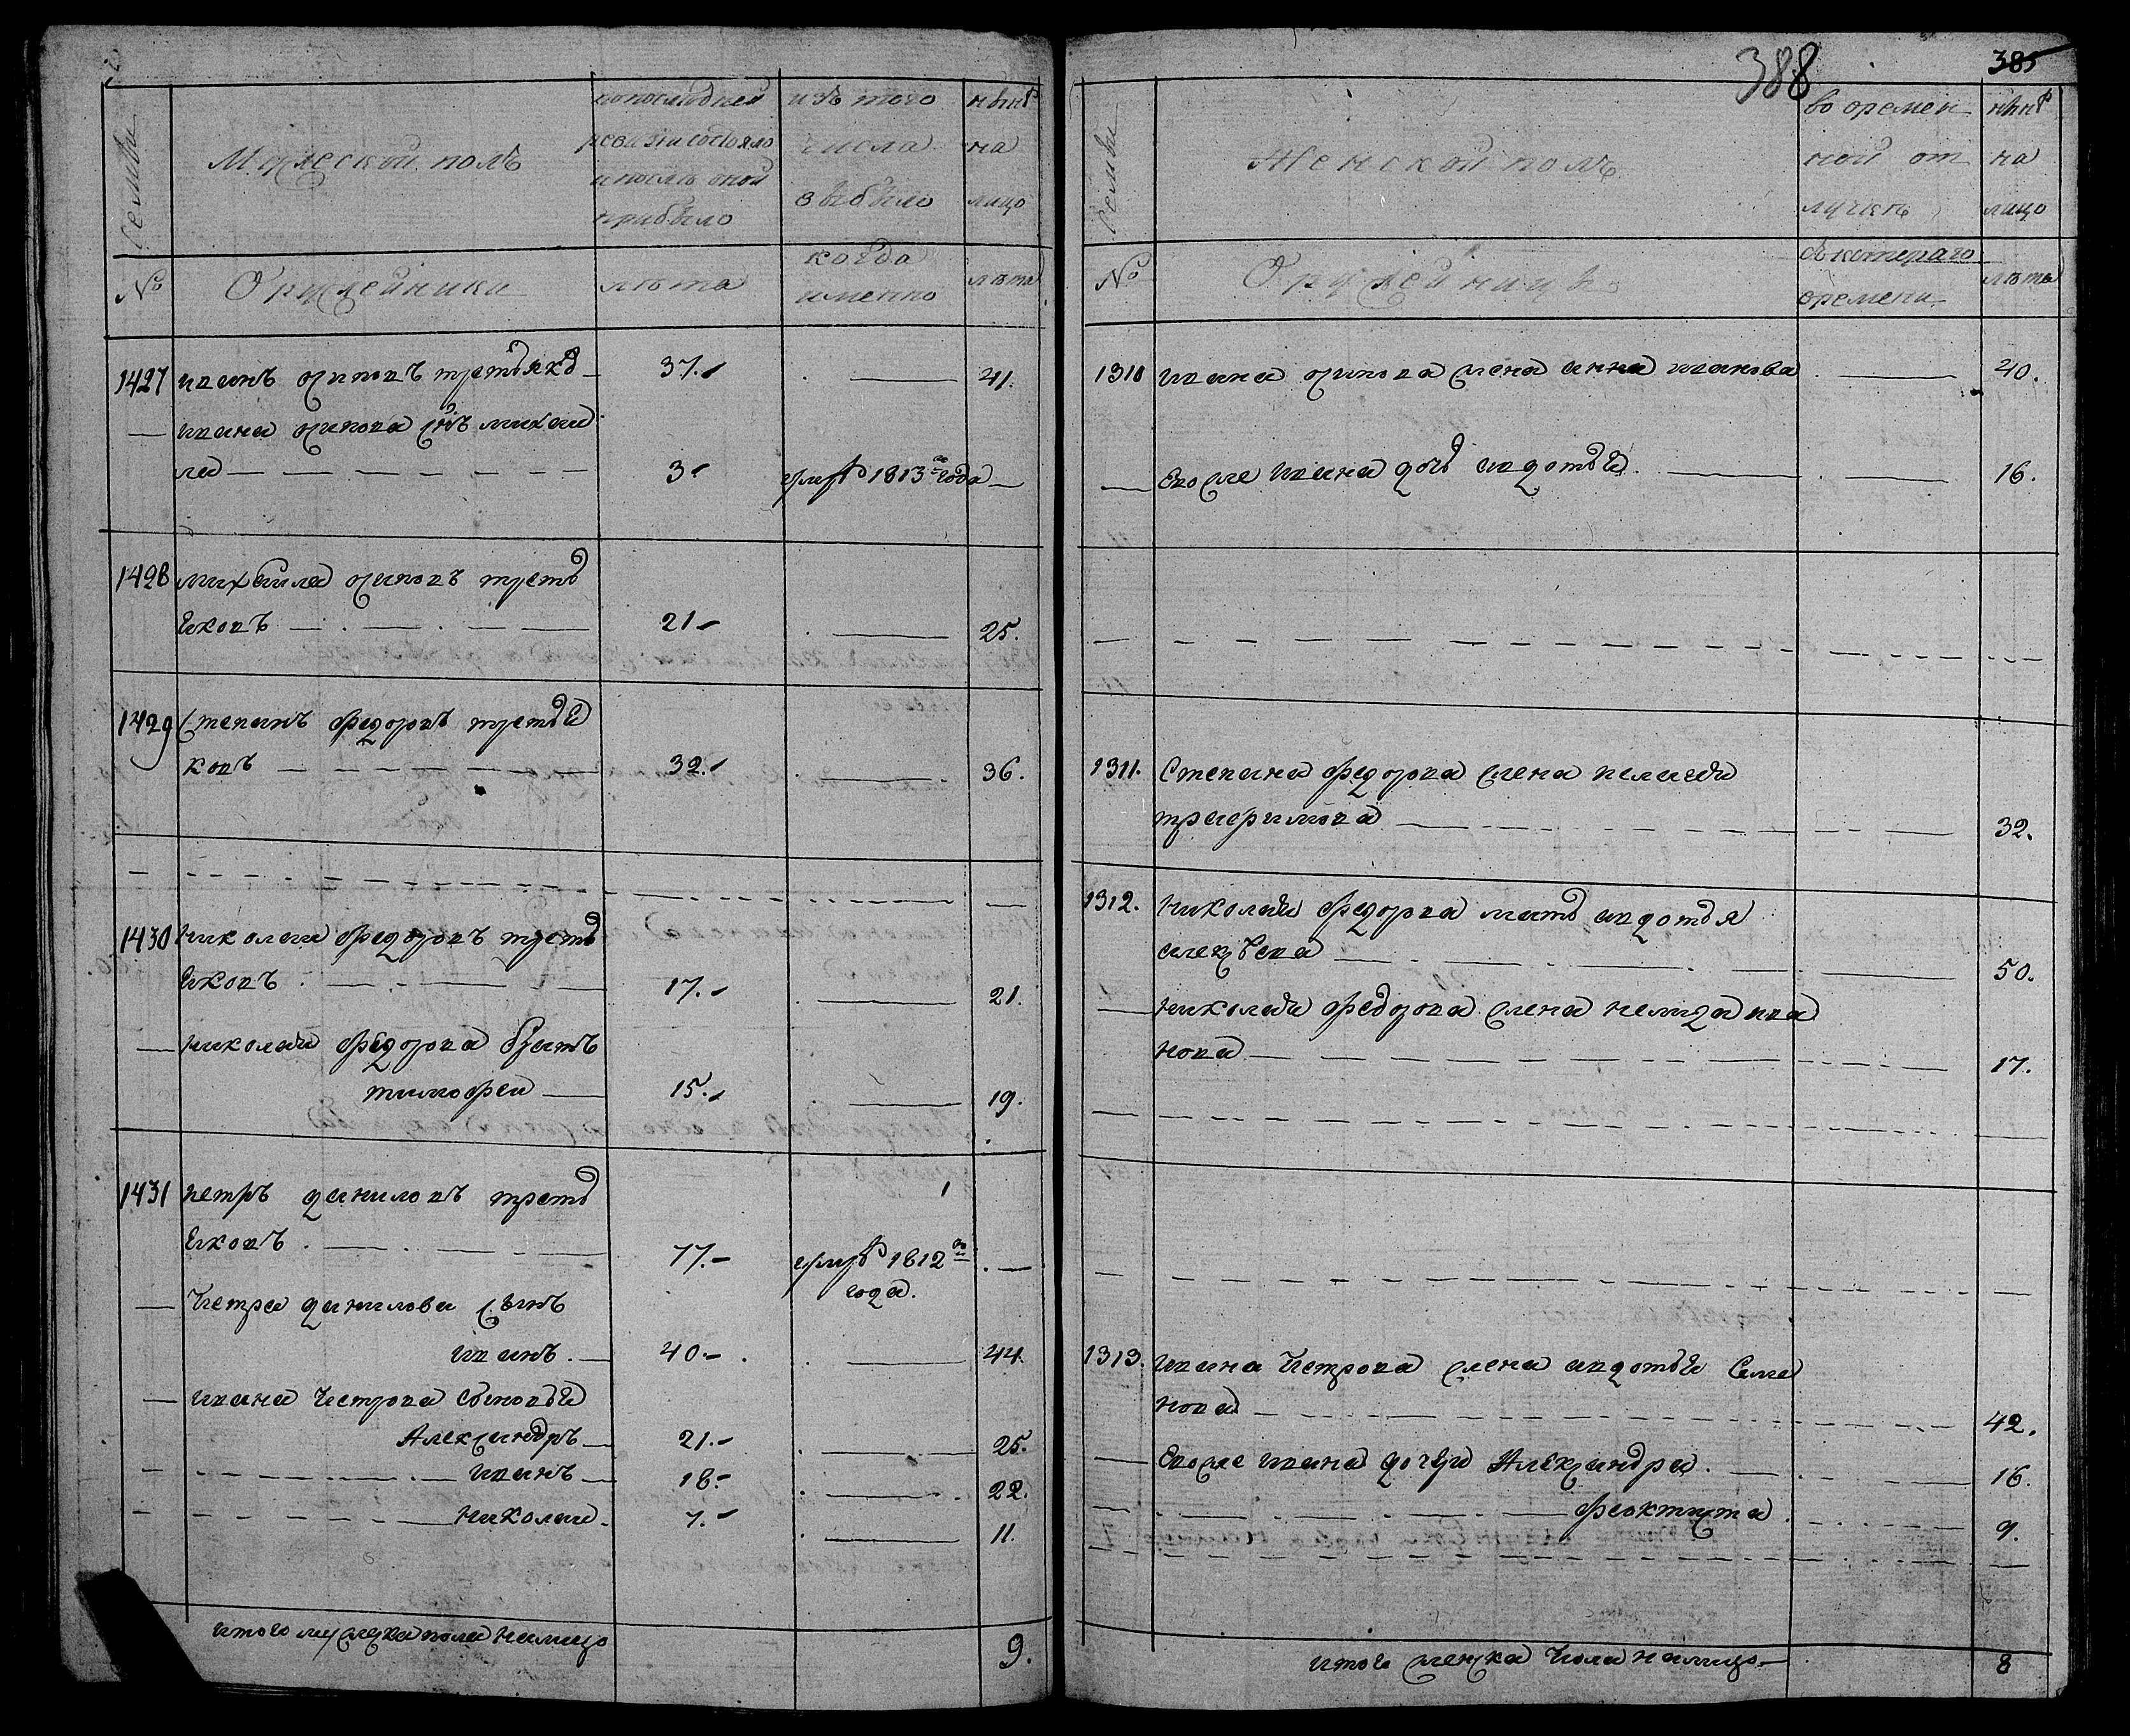 Семьи
Мужеской полъ
по последней
ревизии состояло
и после оной
прибыло
изъ того
числа
выбыло
нынѣ
на
лицо
№
Оружейники
лѣта
когда
именно
лѣта
1427 иванъ осиповъ третьяко 37. — 41.
— ивана осипова снъ михаи
ла — 3 умре 1813го года —
1428 михаила осиповъ треть
яковъ — 21 — 25.
1429 степанъ федоровъ третья
ковъ — 32. — 36.
1430 николаи федоровъ треть
яковъ — 17. — 21.
— николаи федорова братъ
тимофеи — 15. — 19.
1431 петръ даниловъ треть
яковъ — 77. умре 1812го —
года.
— петра данилова сынъ
иванъ. — 40. — 44.
— ивана петрова сыновья
Александръ — 21. — 25.
— иванъ — 18. — 22.
— николаи — 7. — 11.
итого мужеска пола налицо 9.
388 385
Семьи
Женской полъ
во времен
ной от
лучке
нынѣ
на
лицо
№
Оружейницы
с котораго
времени
лѣта
1310 ивана осипова жена анна иванова — 40.
— Евоже ивана дочь авдотья — 16.
1311. Степана федорова жена пелагея
трафимова — 32.
1312. николая федорова мать авдотья
алексѣева — 50.
— николая федорова жена
нова — 17.
1313. ивана петрова жена авдотья Семе
нова — 42.
— Евоже ивана дочери Александра. — 16.
— феоктиста — 9.
итого женска пола налицо — 8